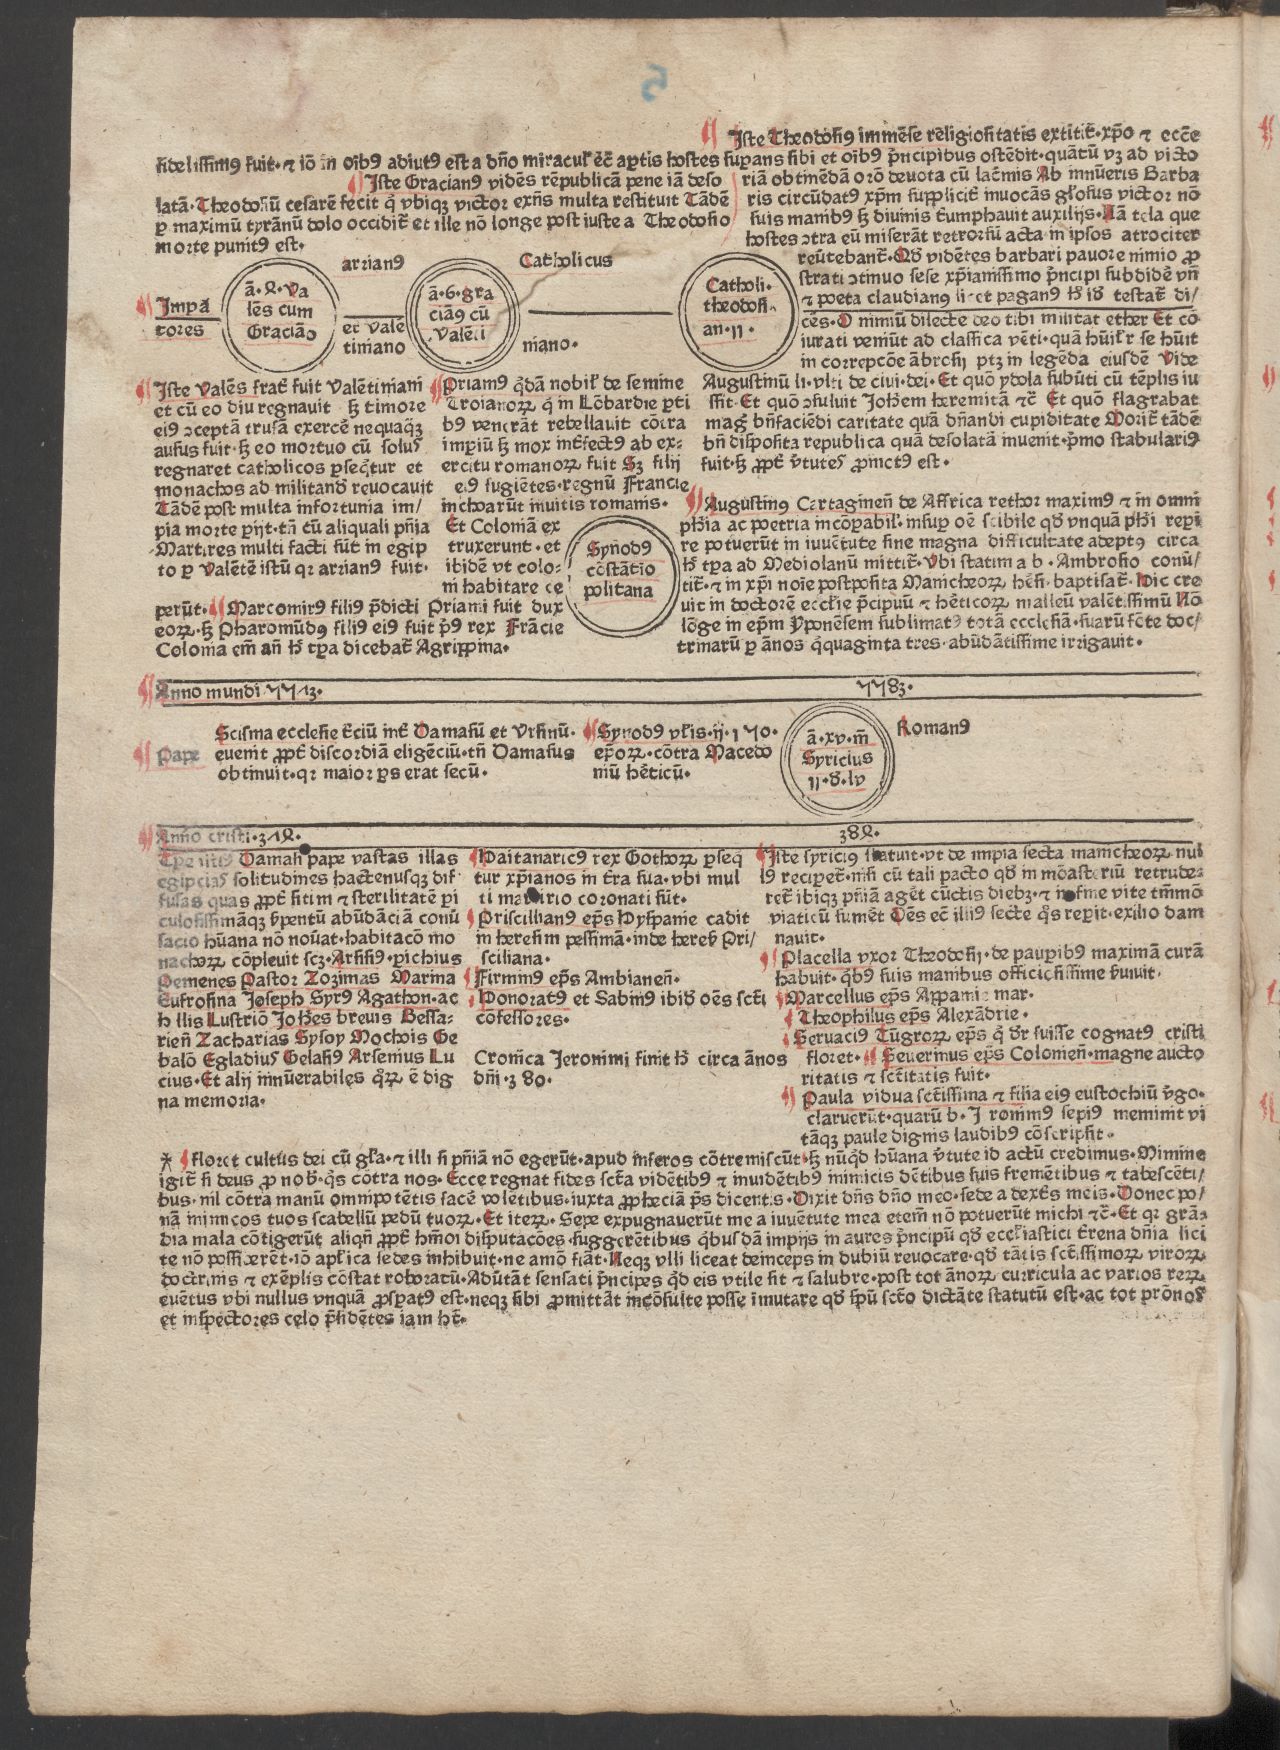 Iste Theodosiꝰ immēse religiositatis extitit̄·xp̄o ⁊ eccē
fidelissimꝰ fuit·⁊ iō in oīb9 adiut9 est a dn̄o
hostes sup̄ans sibi et oīb9 p̄ncipibus ostēdit·quātū vꝫ ad victo
Iste Gracian9 vidēs rēpublicā pene iā deso
latā·Theodosiū cesarē fecit vbiqꝫ victor exn̄s multa restituit Tādē
ꝑ maximū tyrānū dolo occidit̄ et ille nō longe post iuste a Theodosio
morte punit9 est·
riā obtinēdā orō deuota cū lac̄mis Ab innūeris Barba
ris circūdat9 xp̄m supplicit̄ inuocās gl̄osus victor nō
suis manib9 sꝫ diuinis t̄umphauit auxilijs·Nā tela que
hostes ɔtra eū miserāt retrorsū acta in ipsos atrociter
reūtebant̄·Qd̄ vidētes barbari pauore nimio ꝓ
strati ɔtinuo sese xp̄ianissimo p̄ncipi subdidē vn̄
⁊ poeta claudian9 licet pagan9 testat̄ di/
cēs·O nimiū dilecte deo tibi militat ether Et cō
iurati veniūt ad classica vēti·
in correpcōe ābrosij ptꝫ in legēda eiusdē Vide
Augustinū li·vlti de ciui·dei·Et quō ydola subūti cū tēplis iu
ssit·Et quō ɔsuluit Joh̄em heremitā ⁊c̄ Et quō flagrabat
mag bn̄faciēdi caritate quā dn̄andi cupiditate Morit̄ tādē
bn̄ disposita republica quā desolatā inuenit·p̄mo stabularis
fuit·sꝫ ꝓpt̄ v̄tutes ꝓmot9 est·
arrian9
Catholicus
Impa
tores
ā·Ꝝ·Va
lēs cum
Graciāo
et vale
tiniano
ā·6·gra
ciā9 cū
Valēti
niano·
Catholi·
theodosi
an·11·
Iste Valēs frat̄ fuit Valētiniani
et cū eo diu regnauit sꝫ timore
ei9 ɔceptā trusā exercē nequaqꝫ
ausus fuit·sꝫ eo mortuo cū solus
regnaret catholicos ꝑseq̄tur et
monachos ad militand̄ reuocauit
Tādē post multa infortunia im/
pia morte ꝑijt·tn̄ cū aliquali pn̄ia
Martires multi facti sūt in egip
to ꝑ Valētē istū qꝛ arrian9 fuit·
Priam9 q̄dā nobil̄ de semine
Troianoꝝ q̄ in Lōbardie ꝑti
b9 venerāt rebellauit cōtra
imꝑiū sꝫ mox int̄fect9 ab ex=
ercitu romanoꝝ fuit Sꝫ filij
ei9 fugiētes·regnū Francie
inchoarūt inuitis romanis·
Et Coloniā ex
truxerunt·et
ibidē vt colo=
ni habitare ce
perūt·Marcomir9 fili9 p̄dicti Priami fuit dux
eoꝝ·sꝫ Pharomūd9 fili9 ei9 fuit p̄9 rex Frācie
Colonia em̄ an̄ h̄ tꝑa dicebat̄ Agrippina·
Synod9
cōstātio
politana
Augustin9 Cartaginen̄ de Affrica rethor maxim9 ⁊ in omni
ph̄ia ac poetria incōpabil̄·insuꝑ oē scibile qd̄ vnquā ph̄i repi
re potuerūt in iuuētute sine magna difficultate adept9 circa
h̄ tꝑa ad Mediolanū mittit̄·Vbi statim a b·Ambrosio conū/
tit̄·⁊ in xp̄i noīe postposita Manicheoꝝ hēsi·baptisat̄·Hic cre
uit in doctorē eccl̄ie p̄cipuū ⁊ hēticoꝝ malleū valētissimū Nō
lōge in ep̄m yponēsem sublimat9 totā ecclesiā·suarū fōte doc/
trinarū ꝑ ānos q̄quaginta tres·abūdātissime irrigauit·
Anno mundi ꓥꓥ13·
ꓥꓥ83·
Pape
Scisma ecclesie t̄ciū int̄ Damasū et Vrsinū·
euenit ꝓpt̄ discordiā eligēciū·tn̄ Damasus
obtinuit·qꝛ maior ꝑs erat secū·
Synod9 vl̄is·ij·1ꓥ0·
ep̄oꝝ·cōtra Macedo
niū hēticū·
ā·xv·m̄
Syricius
11·d·lv
Roman9
Anno cristi·31Ꝝ·
38Ꝝ·
Damasi pape vastas illas
egipcias solitudines hactenusqꝫ dif
fusas quas ꝓpt̄ sitim ⁊ sterilitatē ꝑi
culosissimāqꝫ s̄pentū abūdāciā conū
sacio hūana nō nou̅at·habitacō mo
nachoꝝ cōpleuit scꝫ·Arsisi9·pichius
Pemenes Pastor Zozimas Marina
Eufrosina Joseph Syr9 Agathon·ac
h llis Lustriō Joh̄es breuis Bessa=
rien̄ Zacharias Sysoy Mochois Ge
balō Egladius Gelasi9 Arsenius Lu
cius·Et alij innūerabiles q̄ꝝ ē dig
na memoria·
Haitanaric9 rex Gothoꝝ ꝑseq̄
tur xp̄ianos in t̄ra sua·vbi mul
ti martirio coronati sūt·
Priscillian9 ep̄s Hyspanie cadit
in heresim pessimā·inde heres Pri/
sciliana·
Firmin9 ep̄s Ambianen̄·
Honorat9 et Sabin9 ibid̄ oēs sct̄i
cōfessores·
Cronica Jeronimi finit h̄ circa ānos
dn̄i·380·
Iste syrici9 statuit·vt de impia secta manicheoꝝ nul
l9 recipet̄·nisi cū tali pacto qd̄ in mōasteriū retrude=
ret̄ ibiqꝫ pn̄iā agēt cūctis diebꝫ·⁊ in fine vite tm̄mō
viaticū sumēt Oēs ec̄ illi9 secte q̄s repit·exilio dam
nauit·
Placella vxor Theodosij·de paupib9 maximā curā
habuit·q̄b9 suis manibus officiosissime s̄uiuit·
Marcellus ep̄s Appamie mar·
Theophilus ep̄s Alexādrie·
Seruaci9 Tūgroꝝ ep̄s q̄ dr̄ fuisse cognat9 cristi
floret·Seuerinus ep̄s Colonien̄·magne aucto
ritatis ⁊ sct̄itatis fuit·
Paula vidua sct̄issima ⁊ filia ei9 eustochiū v̄go·
claruerūt·quarū b·Jeronim9 sepi9 meminit vi
tāqꝫ paule dignis laudib9 cōscripsit·
floret cultus dei cū gl̄a·⁊ illi si pn̄iā nō egerūt·apud inferos cōtremiscūt·sꝫ nūq̄d hūana v̄tute id actū credimus·Minime
igit̄ si deus ꝓ nob̄·q̄s cōtra nos·Ecce regnat fides sct̄a vidētib9 ⁊ inuidētib9 inimicis dētibus suis fremētibus ⁊ tabescēti/
bus·nil cōtra manū omnipotētis facē volētibus·iuxta ꝓpheciā ps̄ dicentis·Dixit dn̄s dn̄o meo·sede a dext̄s meis·Donec po/
nā inimicos tuos scabellū pedū tuoꝝ·Et iteꝝ·Sepe expugnauerūt me a iuuētute mea etem̄ nō potuerūt michi ⁊c̄·Et qꝛ grā=
dia mala cōtigerūt aliqn̄ ꝓpt̄ hm̄oi disputacōes·suggerētibus q̄busdā impijs in aures p̄ncipū qd̄ eccl̄iastici t̄rena dn̄ia lici
te nō possiderēt·iō apl̄ica sedes inhibuit·ne amō fiāt·Neqꝫ vlli liceat deinceps in dubiū reuocare·qd̄ tātis sct̄issimoꝝ viroꝝ
doctrinis ⁊ exēplis cōstat roboratū·Adūtāt sensati p̄ncipes q̄d eis vtile sit ⁊ salubre·post tot ānoꝝ curricula ac varios reꝝ
euētus vbi nullus vnquā ꝓspat9 est·neqꝫ sibi ꝓmittāt incōsulte posse īmutare qd̄ sp̄u sct̄o dictāte statutū est·ac tot
et inspectores celo p̄sidētes iam h̄t·